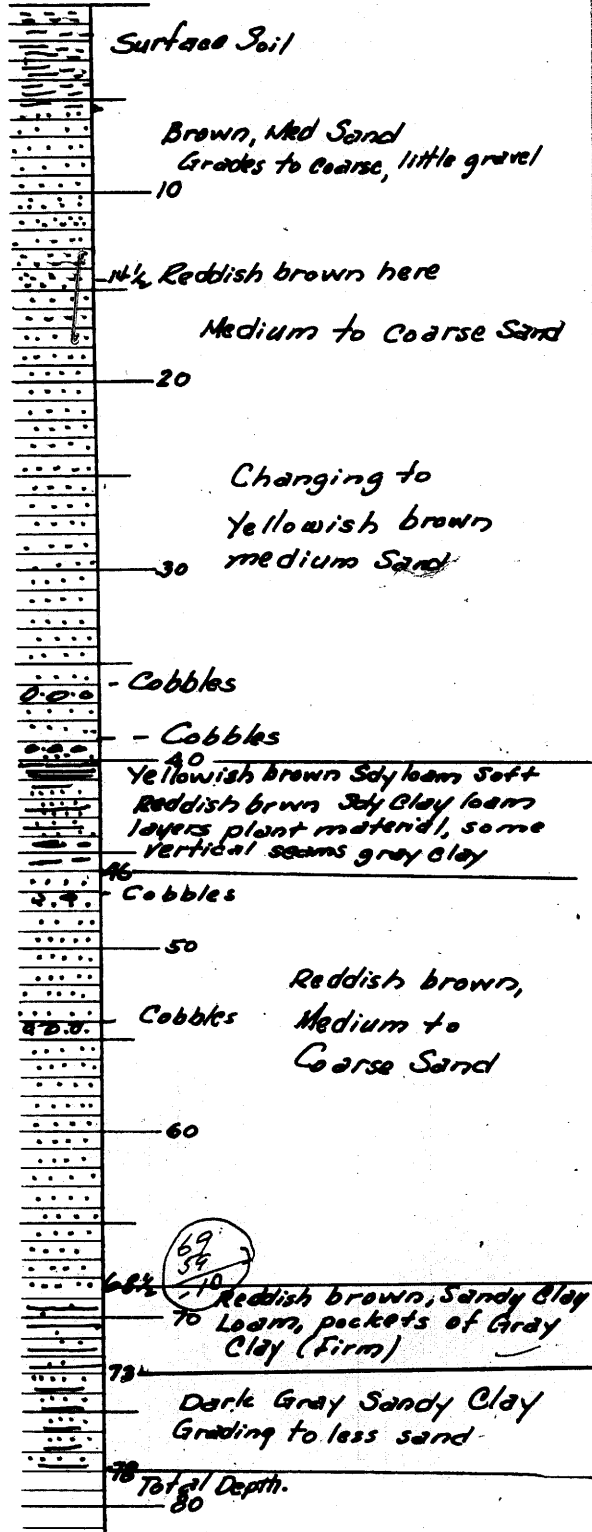 Surface Soil
Brown, Med Sand
Grades to coarse, little gravel
10
14½ Reddish brown here
Medium to Coarse Sand
20
Changing to
Yellowish brown
30 medium Sand
- Cobbles
- Cobbles
40
Yellowish brown Sdy loam soft
Reddish brwn Sdy Clay loam
layers plant material, some
vertical seams gray clay
46
Cobbles
50
Reddish brown,
Cobbles Medium to
Coarse Sand
60
69
59
10
68½ Reddish brown, Sandy Clay
70 Loam, pockets of Gray
Clay (Firm)
73
Dark Gray Sandy Clay
Grading to less sand
78 Total Depth.
80